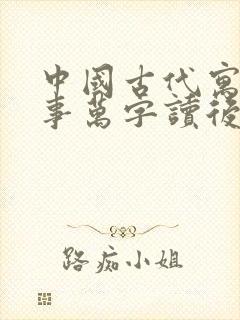 中國古代寓
事萬字讀後
路痴小姐